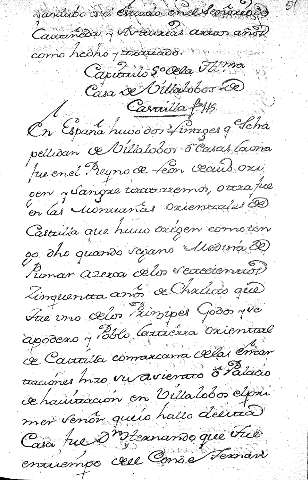 como hecho y travado.
Capitulo 5o de la Yllma
Casa de Villalobos de
Castilla
En España huvo dos Linages qe se ha
pellidan de Villalobos o Casas la una
fue en el Reyno de Leon de cuio ori
gen y sangre trataremos, otra fue
en las Montañas orientales de
Castilla que huvo origen como ten
go dho quando se gano Medina de
Pomar acerca de los setecientos
Zinquenta años de Christo que
fue uno de los Prinzipes Godos y se
apodero y Poblo la tierra oriental
de Castilla comarcana de las
hizo su asiento o Palacio
de havitacion en Villalobos el pri
mer Señor que io hallo de esta
Casa fue Dn Hernando que fue
en tiempo de el Conde Fernan